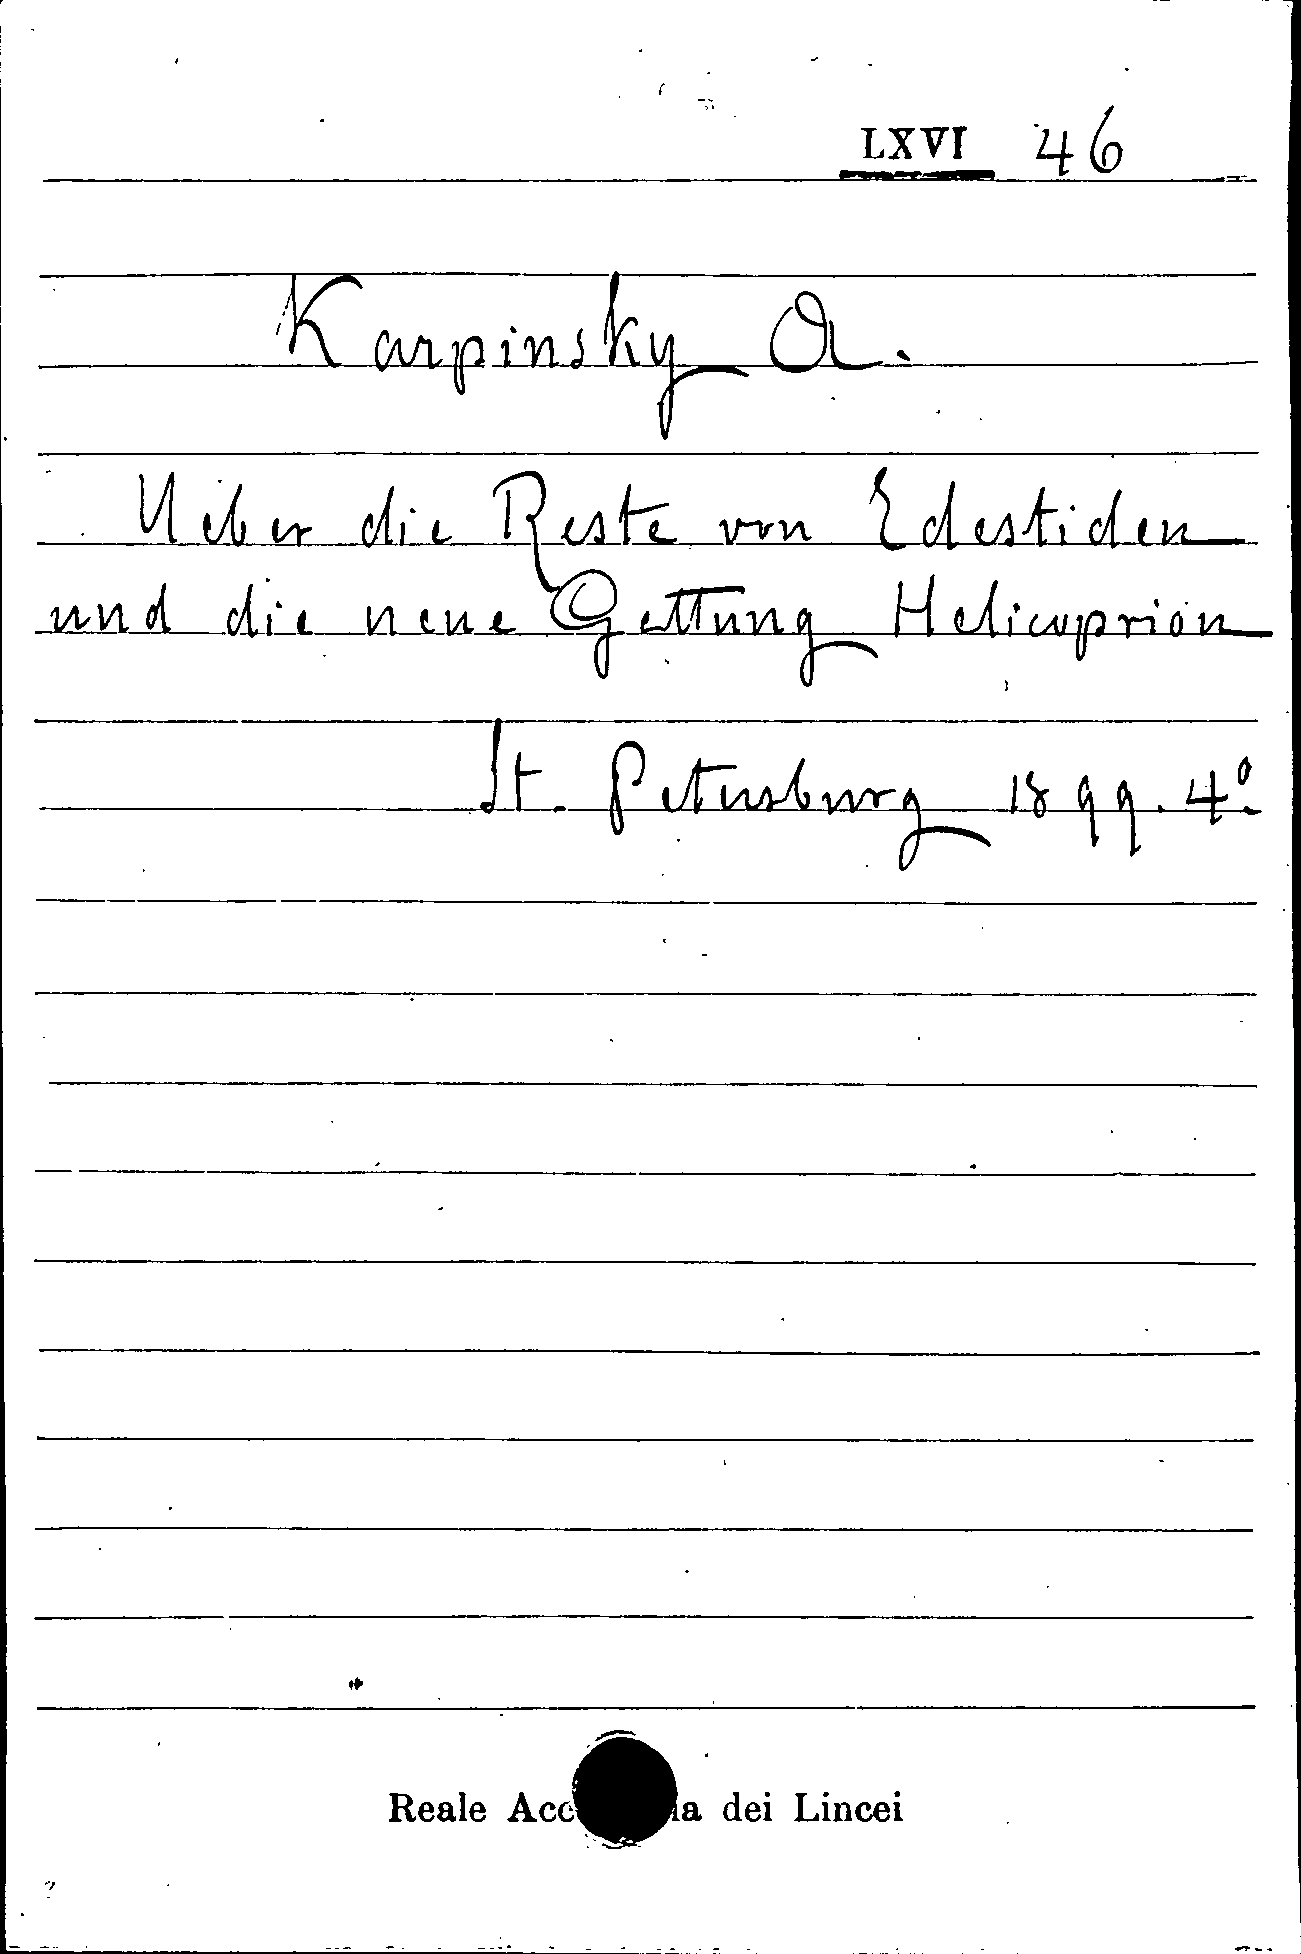 LXVI 46
Karpinsky A.
Ueber die Reste von Edestiden
und die neue Gettung Helicoprion
St. Petersburg 1899. 4º
Reale dei Lincei